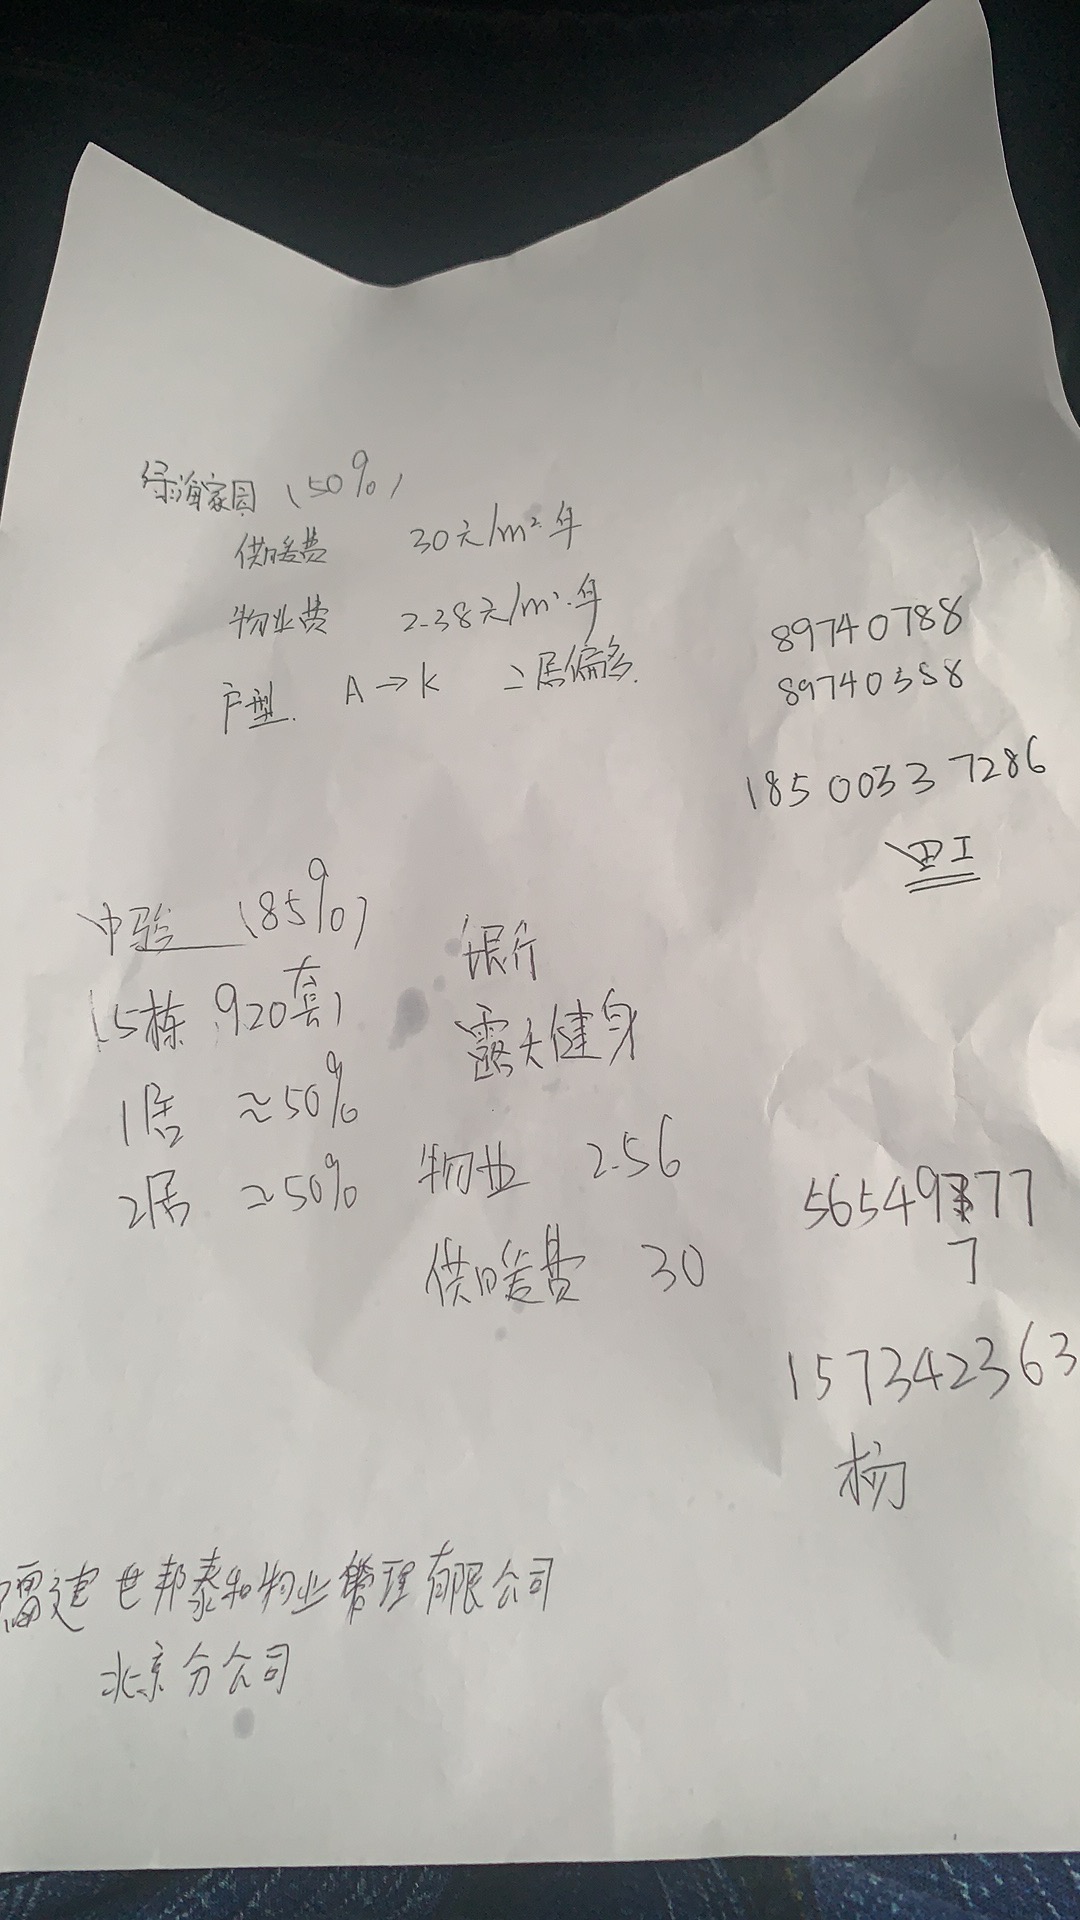 绿海家园 (50%)
供暖费 30元/m²·年
物业费 2.38元/m²·年
户型. A→K 二居偏多.
89740788
89740388
185 0033 7286
中骏 (85%)
15栋 920套)
1居 ≈50%
2居 ≈50%
银行
露天健身
物业 2.56
供暖费 30
56549777
7
157342363
杨
福建世邦泰和物业管理有限公司
北京分公司